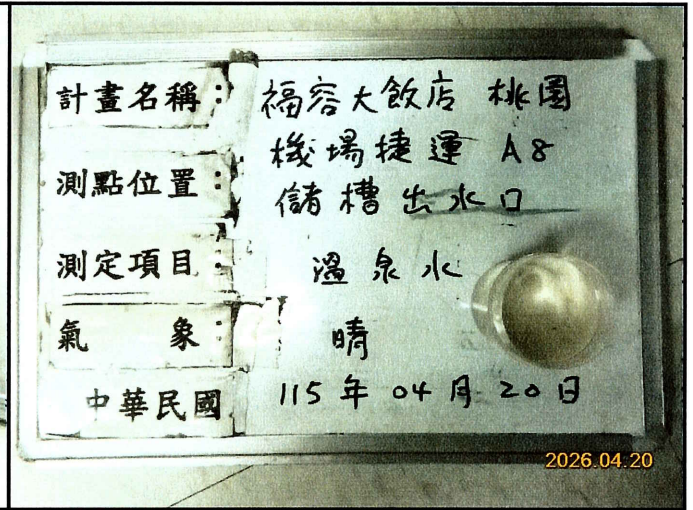 計畫名稱：福容大飯店 桃園
機場捷運 A8
測點位置：儲槽出水口
測定項目：溫泉水
氣象：晴
中華民國 115年04月20日
2026.04.20